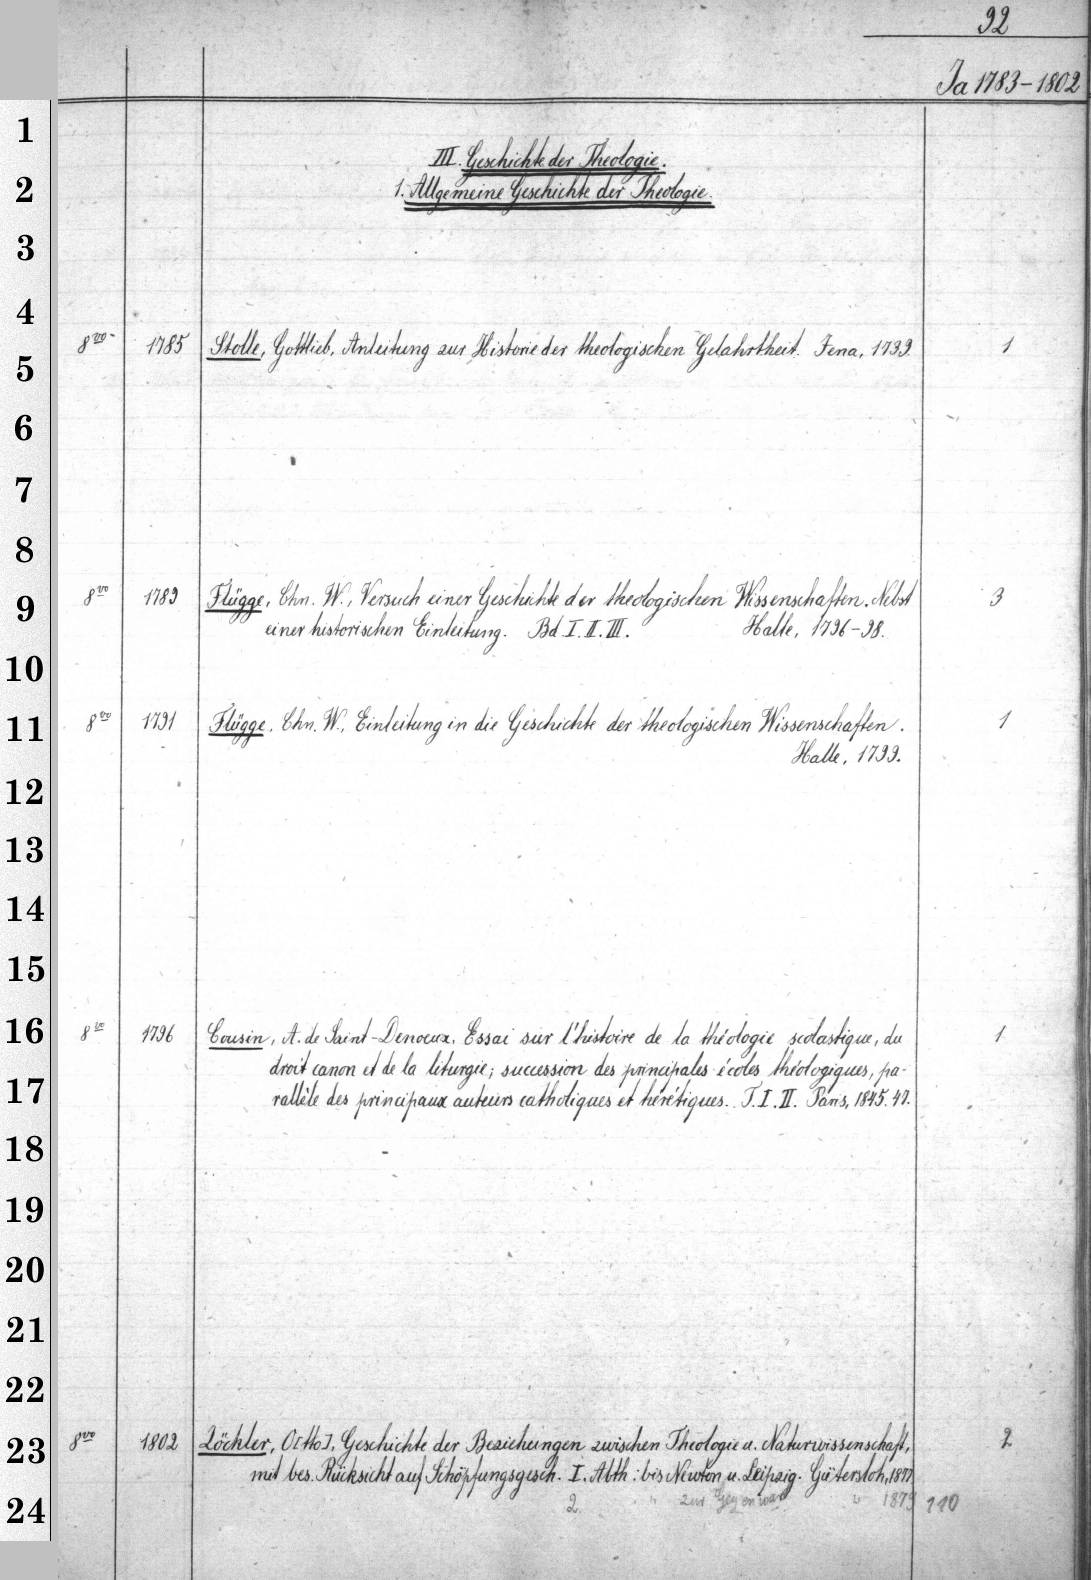 92
Ja 1783-1802
III. Geschichte der Theologie.
1. Allgemeine Geschichte der Theologie.
8vo 1785 Stolle, Gottlieb, Anleitung zur Historie der theologischen Gelahrtheit. Jena, 1739. 1
8vo 1789 Flügge, Chn. W., Versuch einer Geschichte der theologischen Wissenschaften. Nebst 3
einer historischen Einleitung. Bd I. II. III. Halle, 1796-98.
8vo 1791 Flügge, Chn. W., Einleitung in die Geschichte der theologischen Wissenschaften. 1
Halle, 1799.
8vo 1796 Cousin, A. de Saint-Denoeux. Essai sur l'histoire de la théologie scolastique, du 1
droit canon et de la liturgie; succession des principales écoles théologiques, pa-
rallèle des principaux auteurs catholiques et hérétiques. T. I. II. Paris, 1845. 47.
8vo 1802 Zöckler, O[tto], Geschichte der Beziehungen zwischen Theologie u. Naturwissenschaft, 2
mit bes. Rücksicht auf Schöpfungsgesch. I. Abth: bis Newton u. Leipzig. Gütersloh, 1877
2 " zur Gegenwart " 1879 110
1
2
3
4
5
6
7
8
9
10
11
12
13
14
15
16
17
18
19
20
21
22
23
24